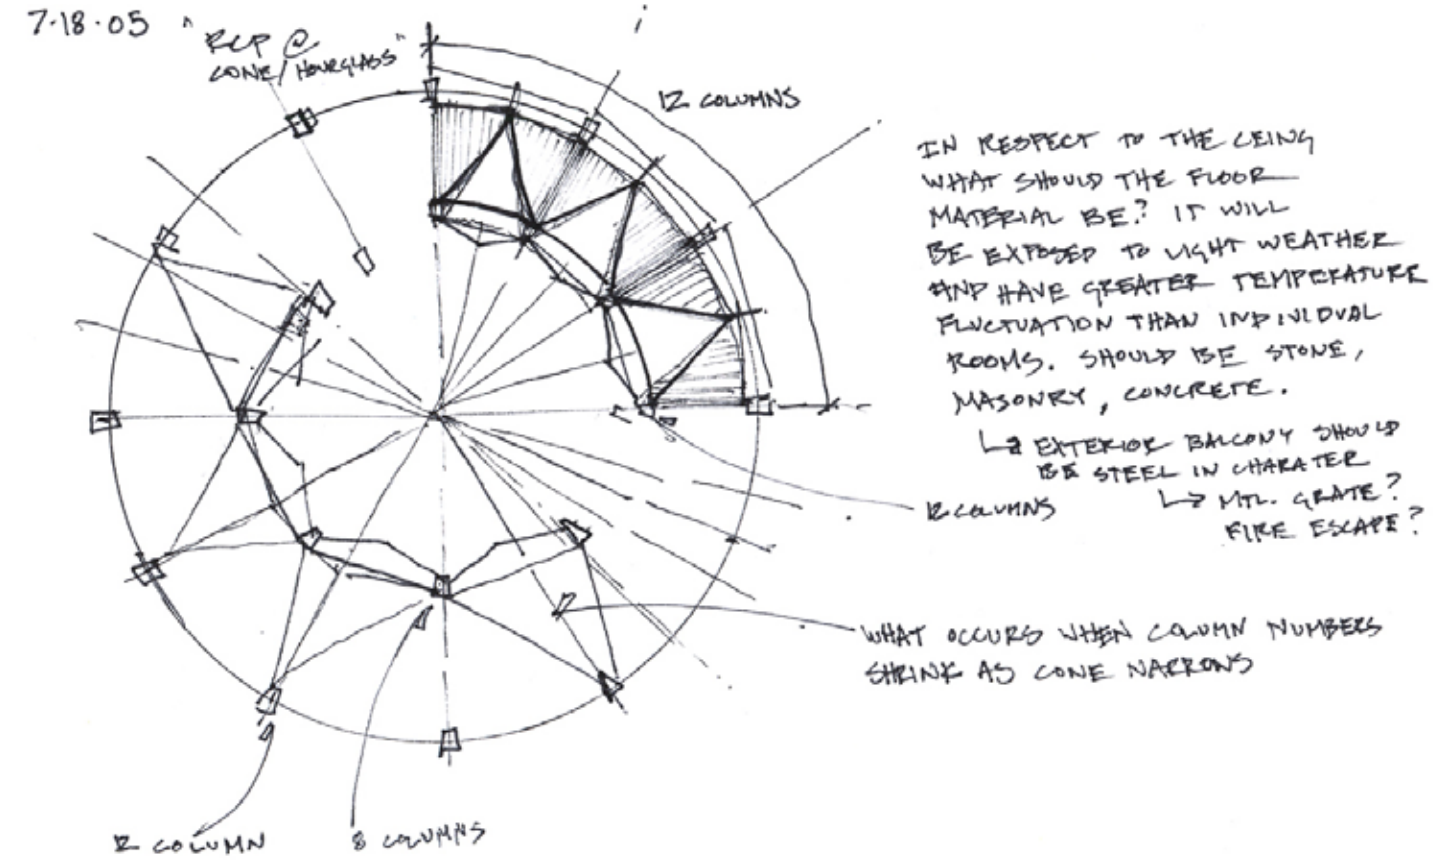 7·18·05
"RCP @
CONE/HOURGLASS"
12 COLUMNS
IN RESPECT TO THE CEING
WHAT SHOULD THE FLOOR
MATERIAL BE? IT WILL
BE EXPOSED TO LIGHT WEATHER
AND HAVE GREATER TEMPERATURE
FLUCTUATION THAN INDIVIDUAL
ROOMS. SHOULD BE STONE,
MASONRY, CONCRETE.
↳ EXTERIOR BALCONY SHOULD
BE STEEL IN CHARATER
↳ MTL. GRATE?
FIRE ESCAPE?
12 COLUMNS
WHAT OCCURS WHEN COLUMN NUMBERS
SHRINK AS CONE NARROWS
12 COLUMN
8 COLUMNS